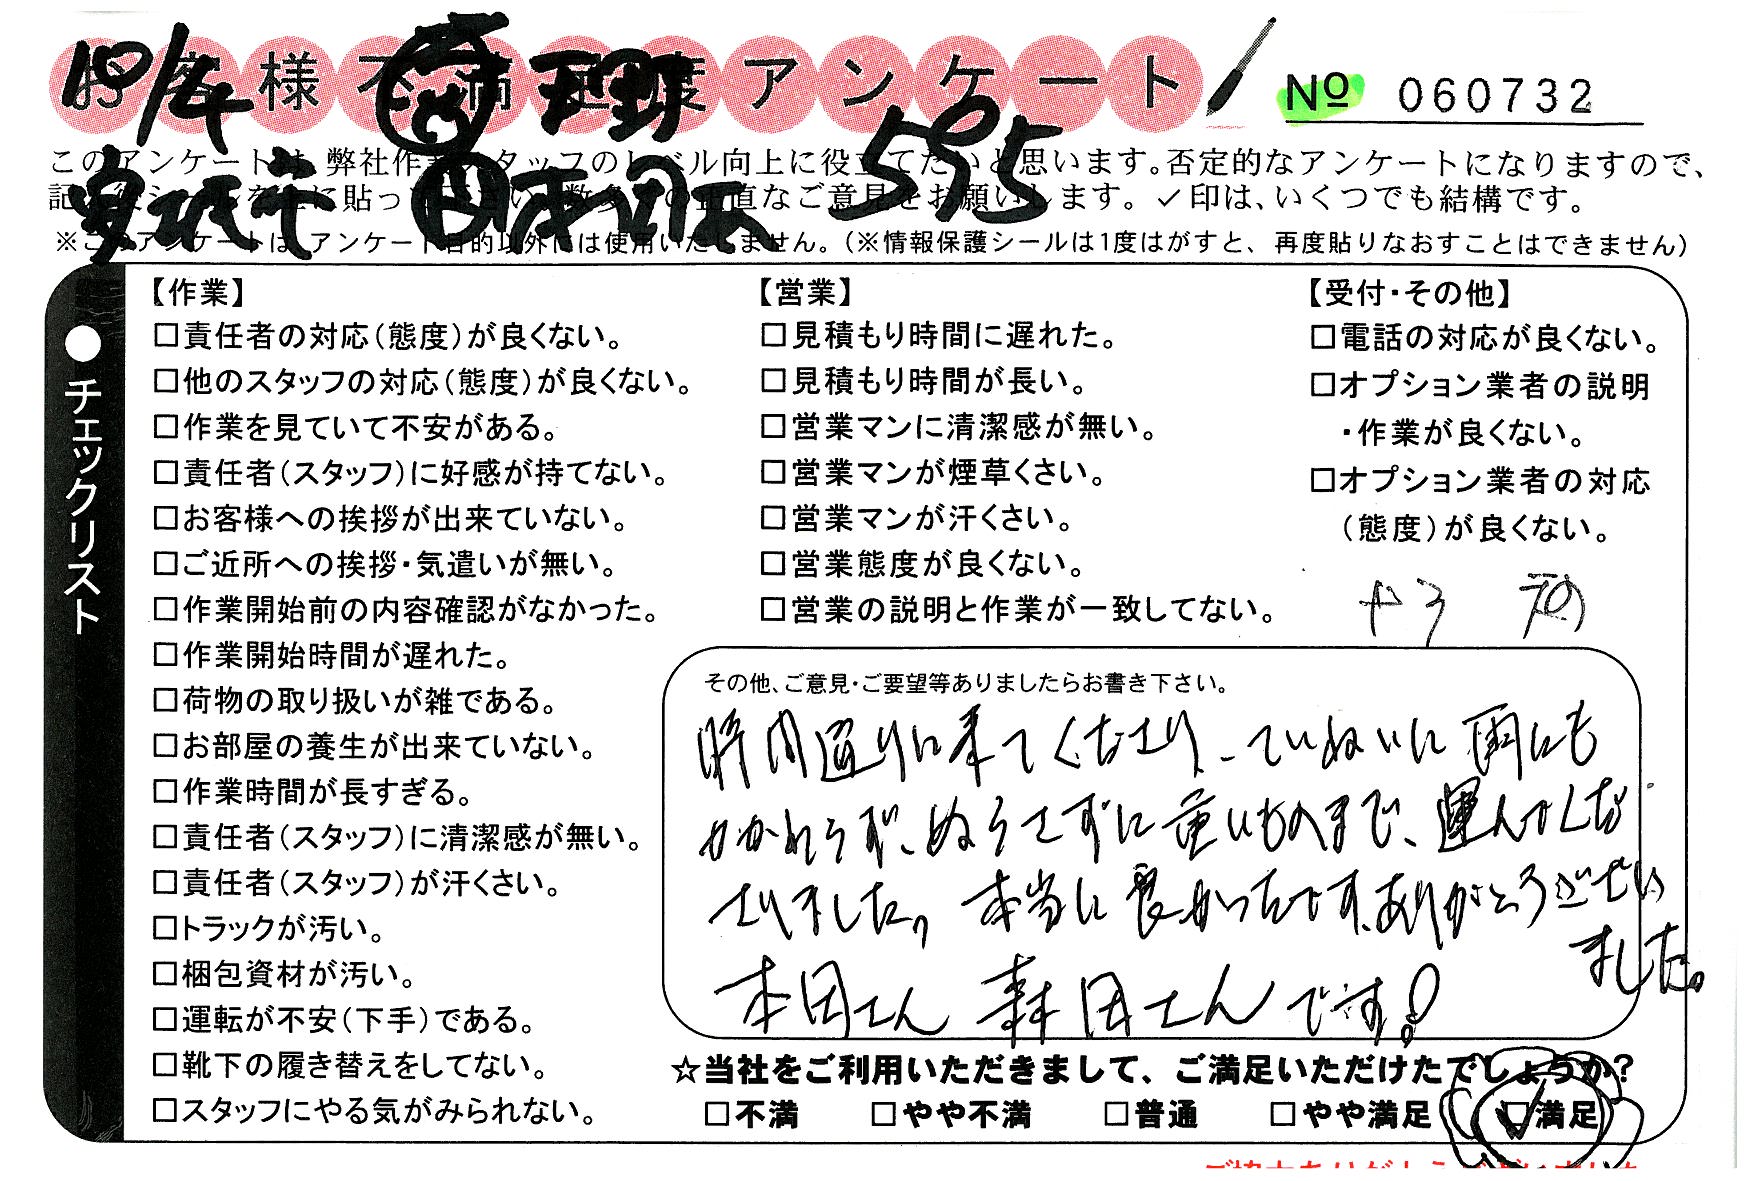 お客様不満足度アンケート
No 060732
10/4
595
このアンケートは、弊社作業スタッフのレベル向上に役立てたいと思います。否定的なアンケートになりますので、
貼って 正直なご意見をお願いします。✓印は、いくつでも結構です。
※このアンケートは、アンケート目的以外には使用いたしません。（※情報保護シールは1度はがすと、再度貼りなおすことはできません）
●チェックリスト
【作業】
□責任者の対応（態度）が良くない。
□他のスタッフの対応（態度）が良くない。
□作業を見ていて不安がある。
□責任者（スタッフ）に好感が持てない。
□お客様への挨拶が出来ていない。
□ご近所への挨拶・気遣いが無い。
□作業開始前の内容確認がなかった。
□作業開始時間が遅れた。
□荷物の取り扱いが雑である。
□お部屋の養生が出来ていない。
□作業時間が長すぎる。
□責任者（スタッフ）に清潔感が無い。
□責任者（スタッフ）が汗くさい。
□トラックが汚い。
□梱包資材が汚い。
□運転が不安（下手）である。
□靴下の履き替えをしてない。
□スタッフにやる気がみられない。
【営業】
□見積もり時間に遅れた。
□見積もり時間が長い。
□営業マンに清潔感が無い。
□営業マンが煙草くさい。
□営業マンが汗くさい。
□営業態度が良くない。
□営業の説明と作業が一致してない。
【受付・その他】
□電話の対応が良くない。
□オプション業者の説明
・作業が良くない。
□オプション業者の対応
（態度）が良くない。
その他、ご意見・ご要望等ありましたらお書き下さい。
時間通りに来てくださり、ていねいに雨にも
かかわらず、ぬらさずに重いものまで、運んでくだ
さりました。本当に良かったです。ありがとうございい
ました。
本田さん 森田さんです!
☆当社をご利用いただきまして、ご満足いただけたでしょうか？
□不満 □やや不満 □普通 □やや満足 ☑満足